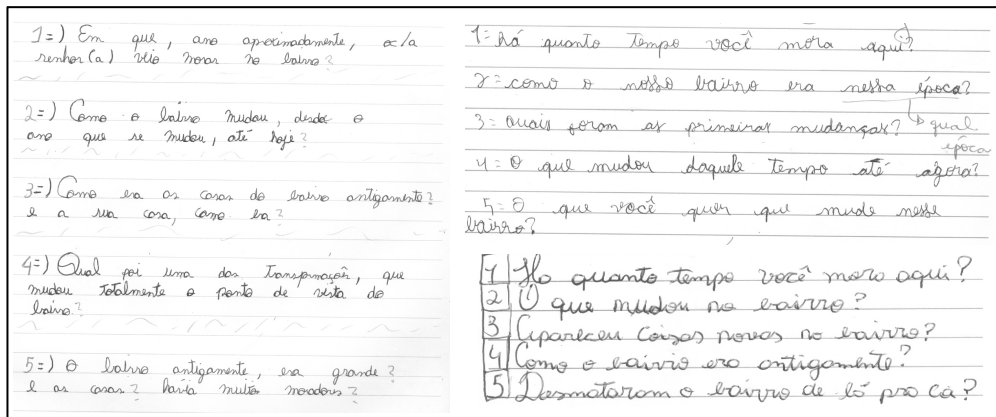 1=) Em que, ano aproximadamente, o/a
senhor(a) veio morar no bairro?
2=) Como o bairro mudou, desde o
ano que se mudou, até hoje?
3=) Como era as casas do bairro antigamente?
e a sua casa, como era?
4=) Qual foi uma das transformações, que
mudou totalmente o ponto de vista do
bairro?
5=) O bairro antigamente, era grande?
e as casas? havia muitos moradores?
1= há quanto tempo você mora aqui?
2= como o nosso bairro era nessa época?
qual
época
3= quais foram as primeiras mudanças?
4= O que mudou daquele tempo até agora?
5= O que você quer que mude nesse
bairro?
1 Ha quanto tempo você mora aqui?
2 O que mudou no bairro?
3 Apareceu coisas novas no bairro?
4 Como o bairro era antigamente?
5 Desmataram o bairro de lá pra cá?